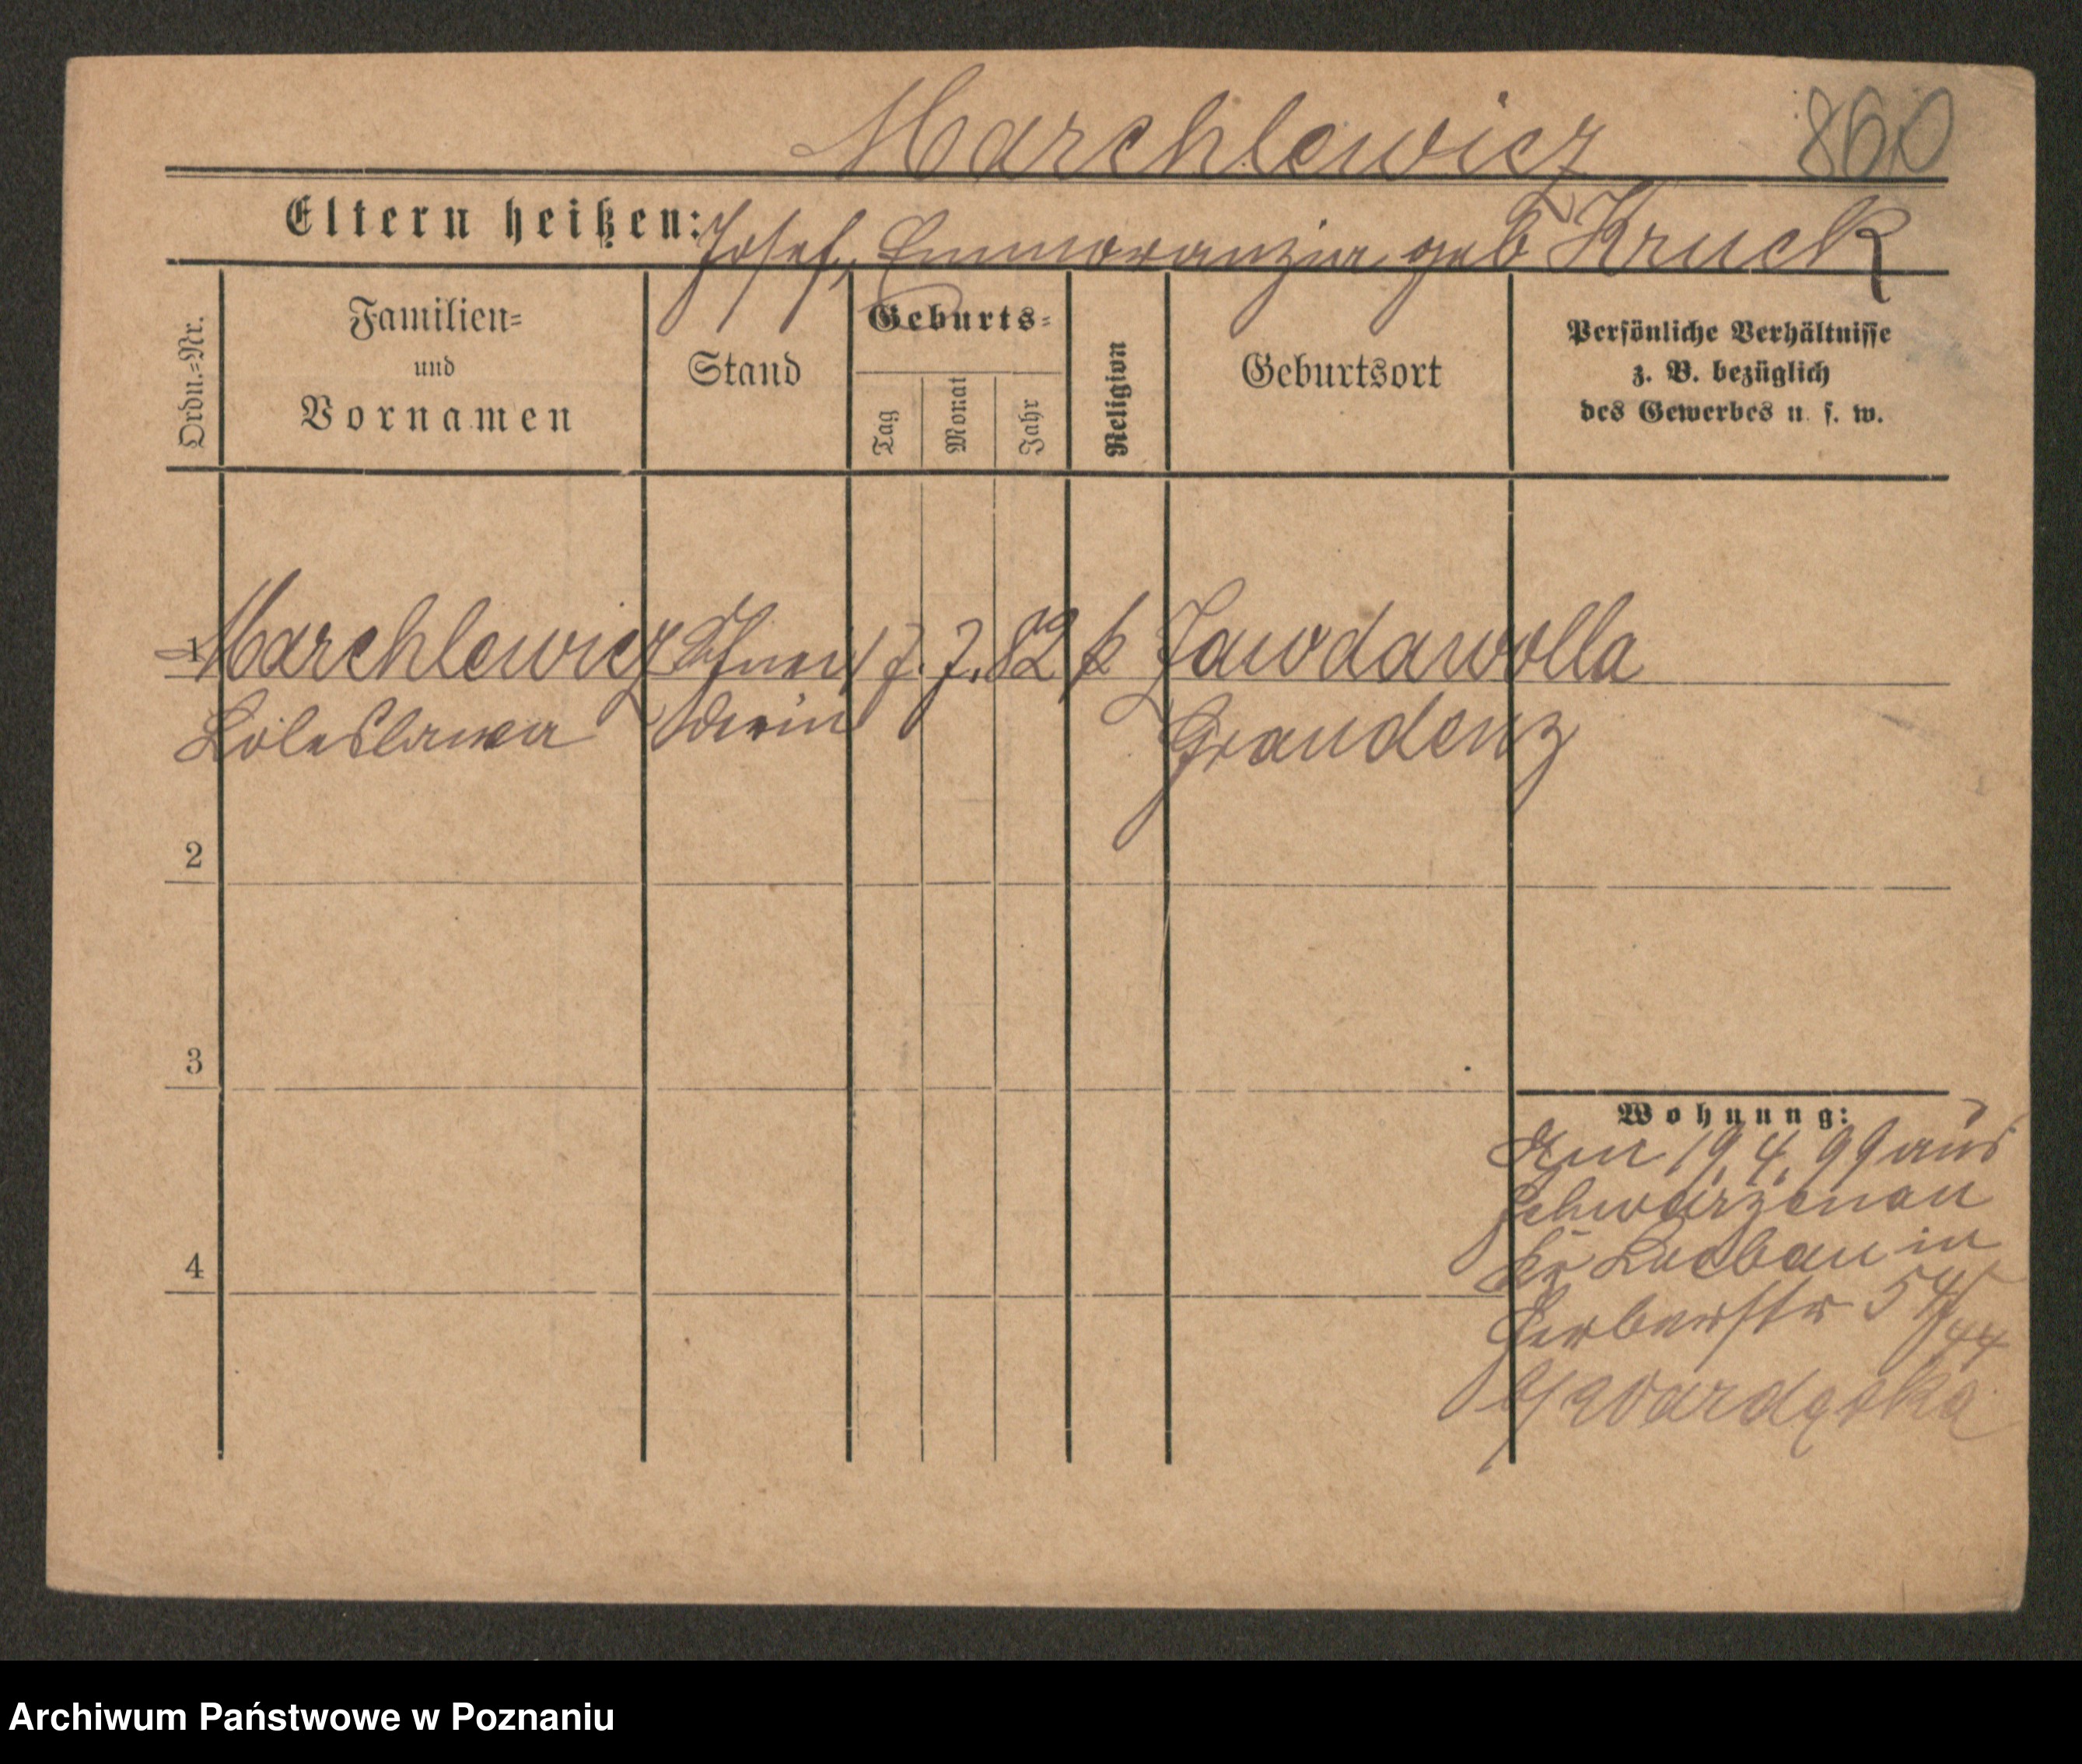 Marchlewicz 860
Eltern heißen: Josef, Emmoranzia geb Kruck
Ordn.=Nr.
Familien=
und
Vornamen
Stand
Geburts=
Tag
Monat
Jahr
Religion
Geburtsort
Persönliche Verhältnisse
z. B. bezüglich
des Gewerbes u. s. w.
1 Marchlewicz Schnei 17. 7. 82 k Zawdawolla
Boleslawa derin Graudenz
2
3
4
Wohnung:
Am 19.4.99 aus
Schwarzenau
Kr Loebau in
Gerberstr 54/
44
b/
Archiwum Państwowe w Poznaniu